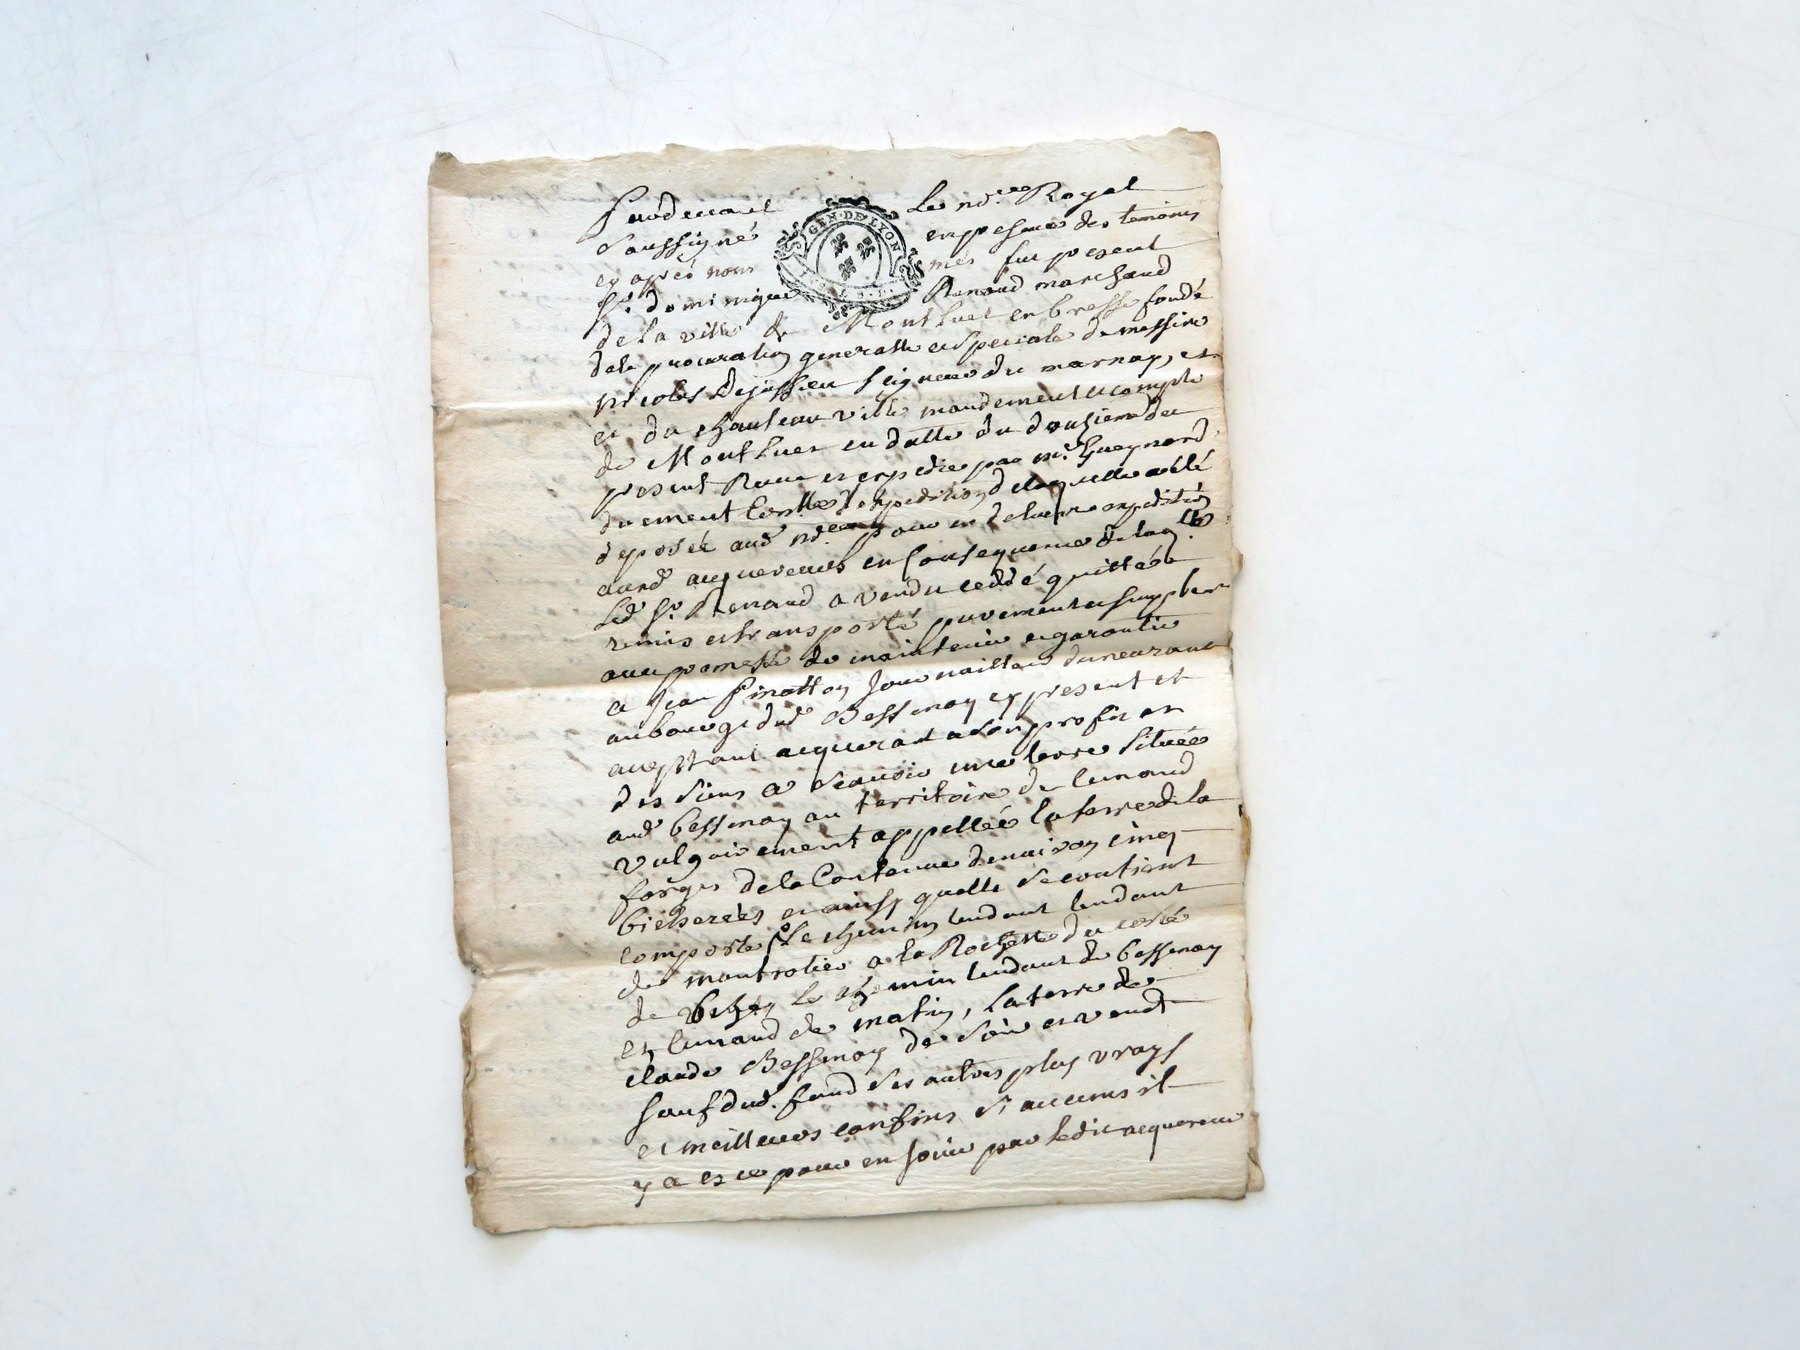 Pardevant Le no.re Royal
soussigné GEN·DE·LYON en presence des temoins
cy apres nom més fut present
Sr. dominique Renaud marchand
de la ville de Montluel en bresse fondé
dela procuration generalle et speciale de messire
nicolas dejussieu seigneur du marnay, et
et du chasteau ville mandement et compté
de Montluel en datte du douzieme du
present Reçue et expediée par me. Gueynard
duement Conllée expedition de laquelle a été
deposée aud no.re pour en delivrer expedition
aud acquereur en Consequence de laq.lle
Led Sr. Renaud a vendu cedé quitté
remis et transporté purement et simplem
avec promesse de maintenir et garantir
a Jean Pinatton Journaillier demeurant
au bourg dud Bessenay cy present et
aceptant acquerant a son profit et
des siens a scavoir une terre située
aud bessenay au territoire de lunand
vulgairement appellée la terre de la
forges dela Contenue denviron cinq
bicherées et ainsy quelle se contient
comporte le chemin tendant tendant
de montrotier a la Rochette du costé
de le chemin tendant de bessenay
et lunand de matin, La terre de
claude Bessenay de soir et vent
sauf dud. fond ses autres plus vrays
et meilleurs confins si aucuns il
y a et ce pour en jouir par ledit acquereur